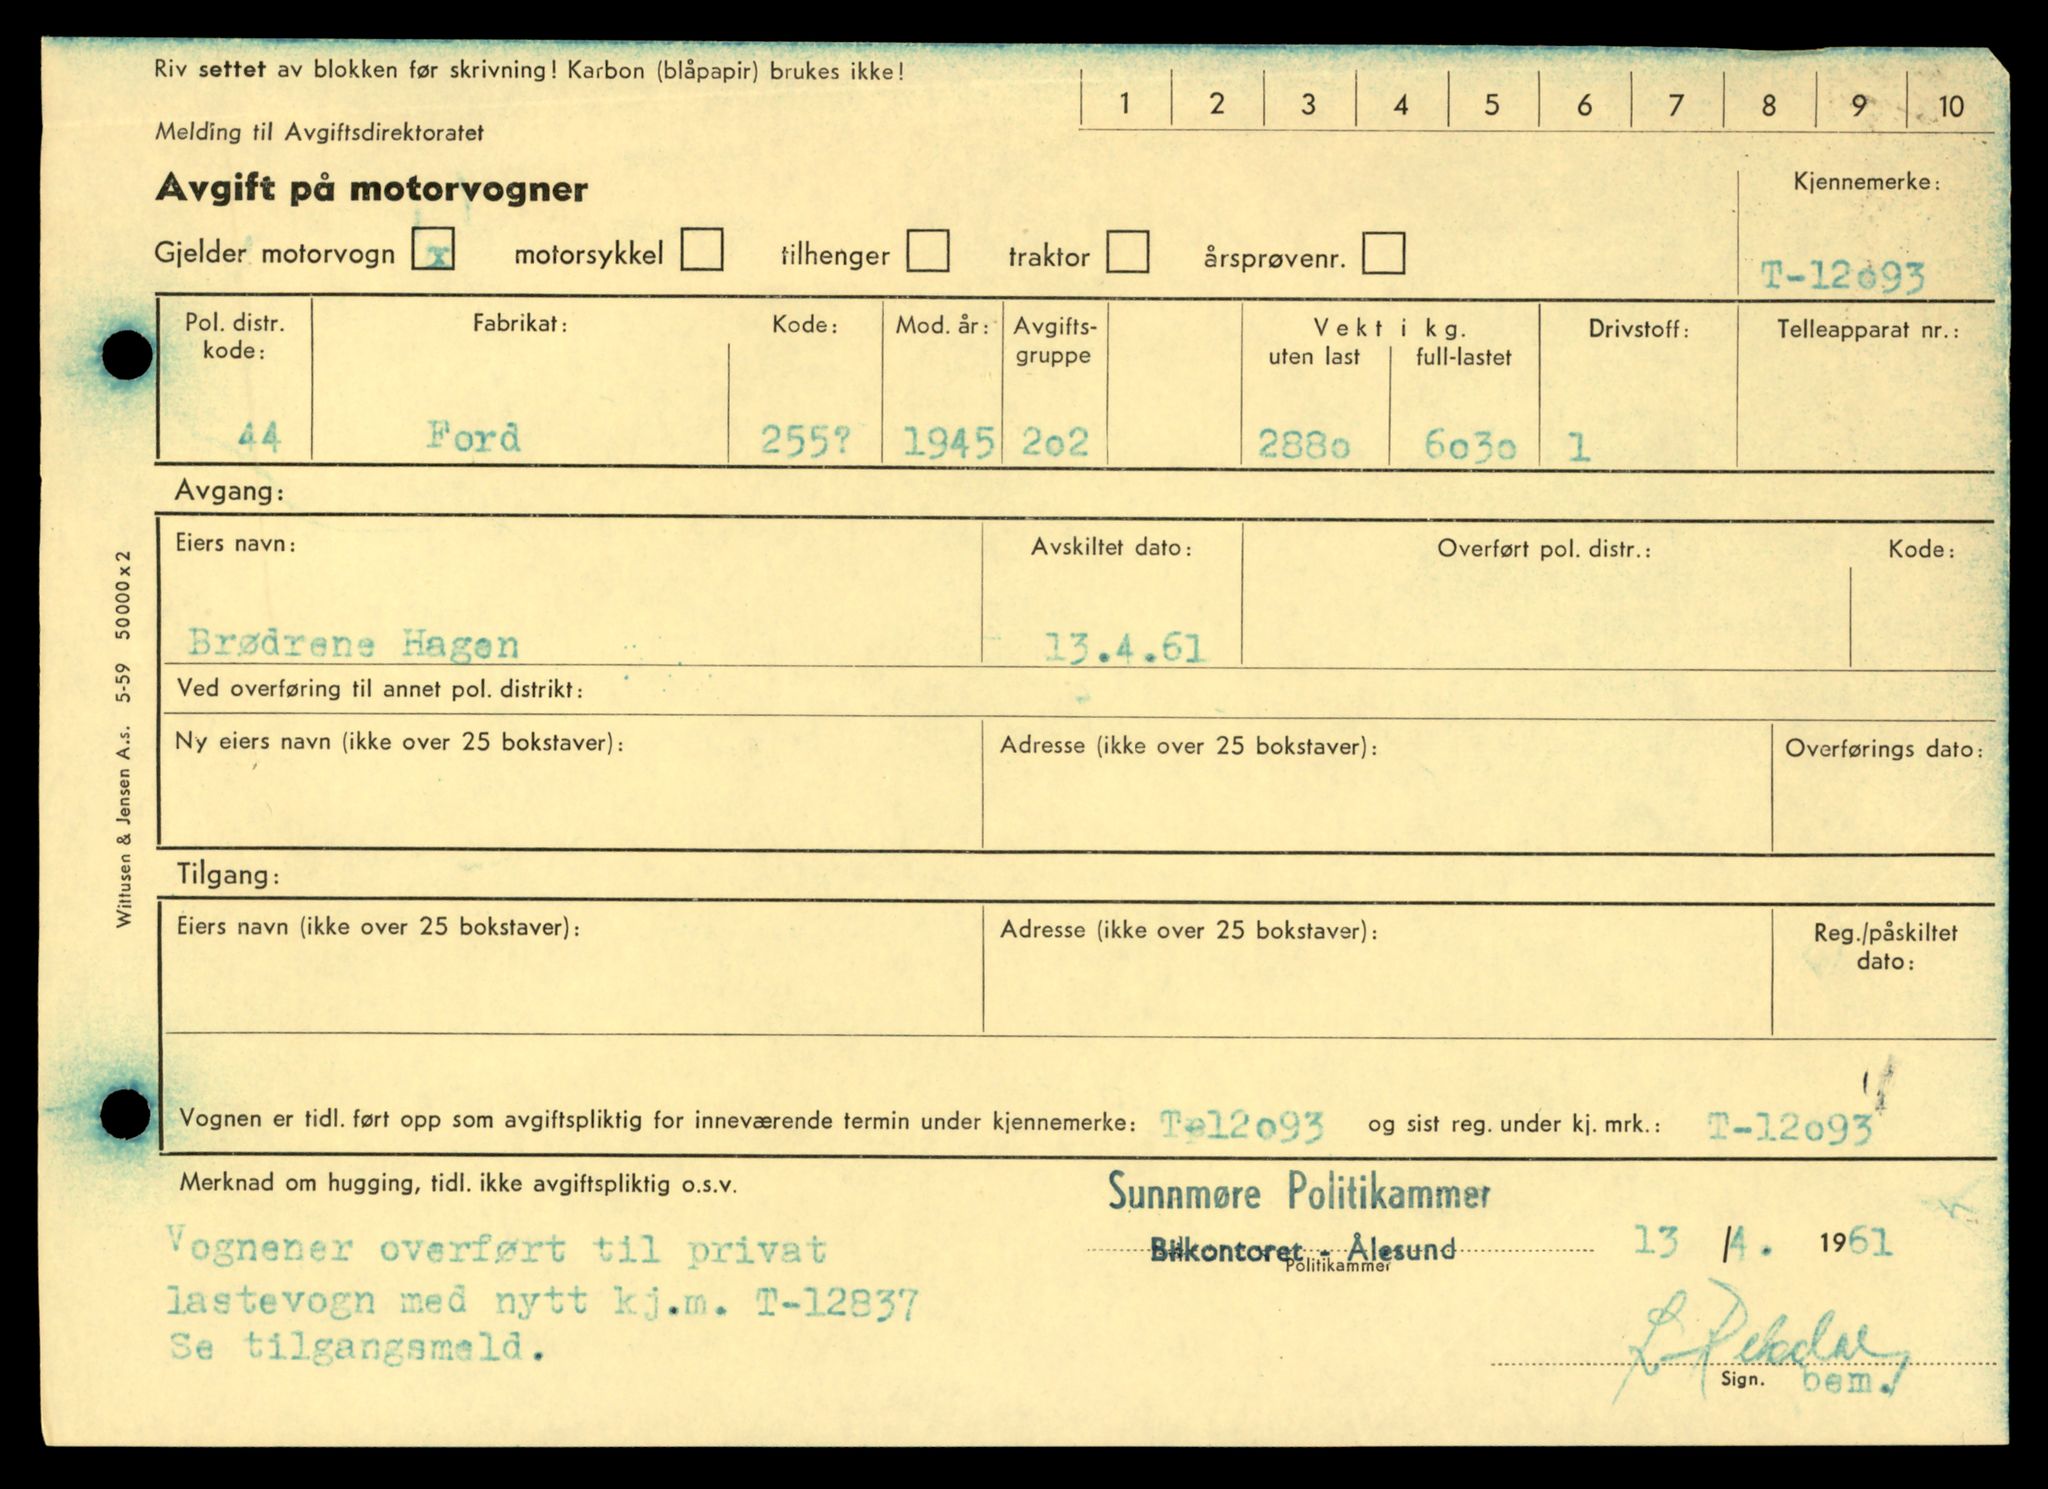 Riv settet av blokken før skrivning! Karbon (blåpapir) brukes ikke!
1 2 3 4 5 6 7 8 9 10
Melding til Avgiftsdirektoratet
Avgift på motorvogner
Kjennemerke:
Gjelder motorvogn x motorsykkel tilhenger traktor årsprøvenr.
T-12o93
Pol. distr. kode: Fabrikat: Kode: Mod. år: Avgifts-gruppe Vekt i kg. uten last full-lastet Drivstoff: Telleapparat nr.:
44 Ford 255? 1945 2o2 288o 6o3o 1
Avgang:
Eiers navn: Avskiltet dato: Overført pol. distr.: Kode:
Brødrene Hagen 13.4.61
Ved overføring til annet pol. distrikt:
Ny eiers navn (ikke over 25 bokstaver): Adresse (ikke over 25 bokstaver): Overførings dato:
Tilgang:
Eiers navn (ikke over 25 bokstaver): Adresse (ikke over 25 bokstaver): Reg./påskiltet dato:
Vognen er tidl. ført opp som avgiftspliktig for inneværende termin under kjennemerke: Te12o93 og sist reg. under kj. mrk.: T-12o93
Merknad om hugging, tidl. ikke avgiftspliktig o.s.v.
Sunnmøre Politikammer
Vognener overført til privat
Bilkontoret - Ålesund 13 /4. 1961
Politikammer
lastevogn med nytt kj.m. T-12837
Se tilgangsmeld.
Sign. bem.
Wittusen & Jensen A.s. 5-59 50000x2